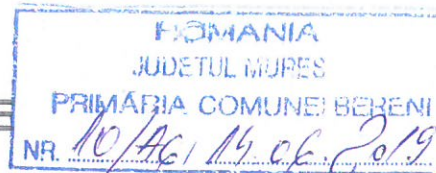 ROMANIA
JUDETUL MUREŞ
PRIMĂRIA COMUNEI BERENI
NR. 10/AG/ 14.06.2019